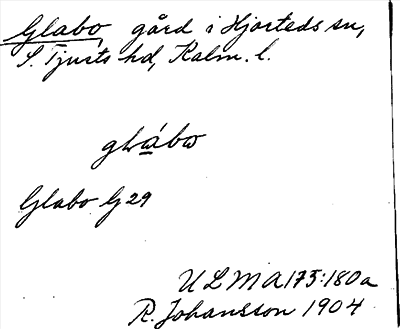 Glabo, gård i Hjorteds sn,
S. Tjusts hd, Kalm. l.
Glabo G 29
ULMA 175:180a
R. Johansson 1904